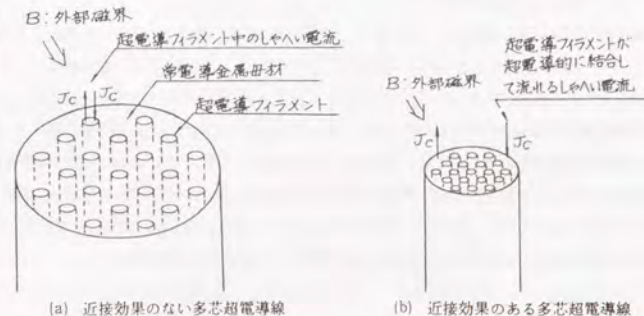 B:外部磁界
超電導フィラメント中のしゃへい電流
常電導金属母材
Jc Jc
超電導フィラメント
(a) 近接効果のない多芯超電導線
超電導フィラメントが
超電導的に結合し
て流れるしゃへい電流
B:外部磁界
Jc
Jc
(b) 近接効果のある多芯超電導線